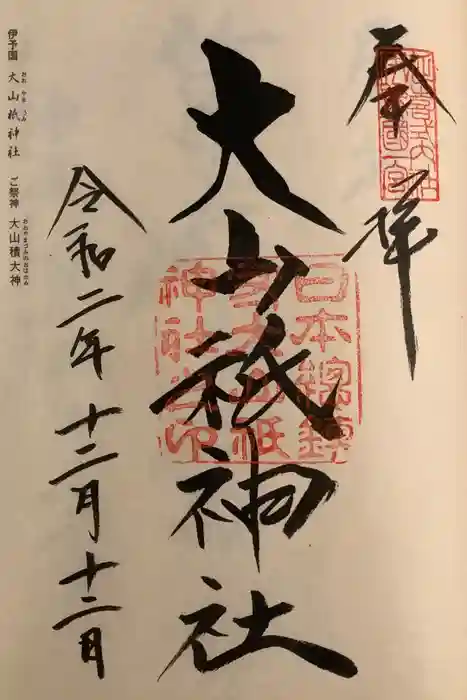 奉拝
日本總鎮
守大山祇
神社之印
大山祇神社
令和二年十二月十二日
伊予国 大山祇神社 ご祭神 大山積大神